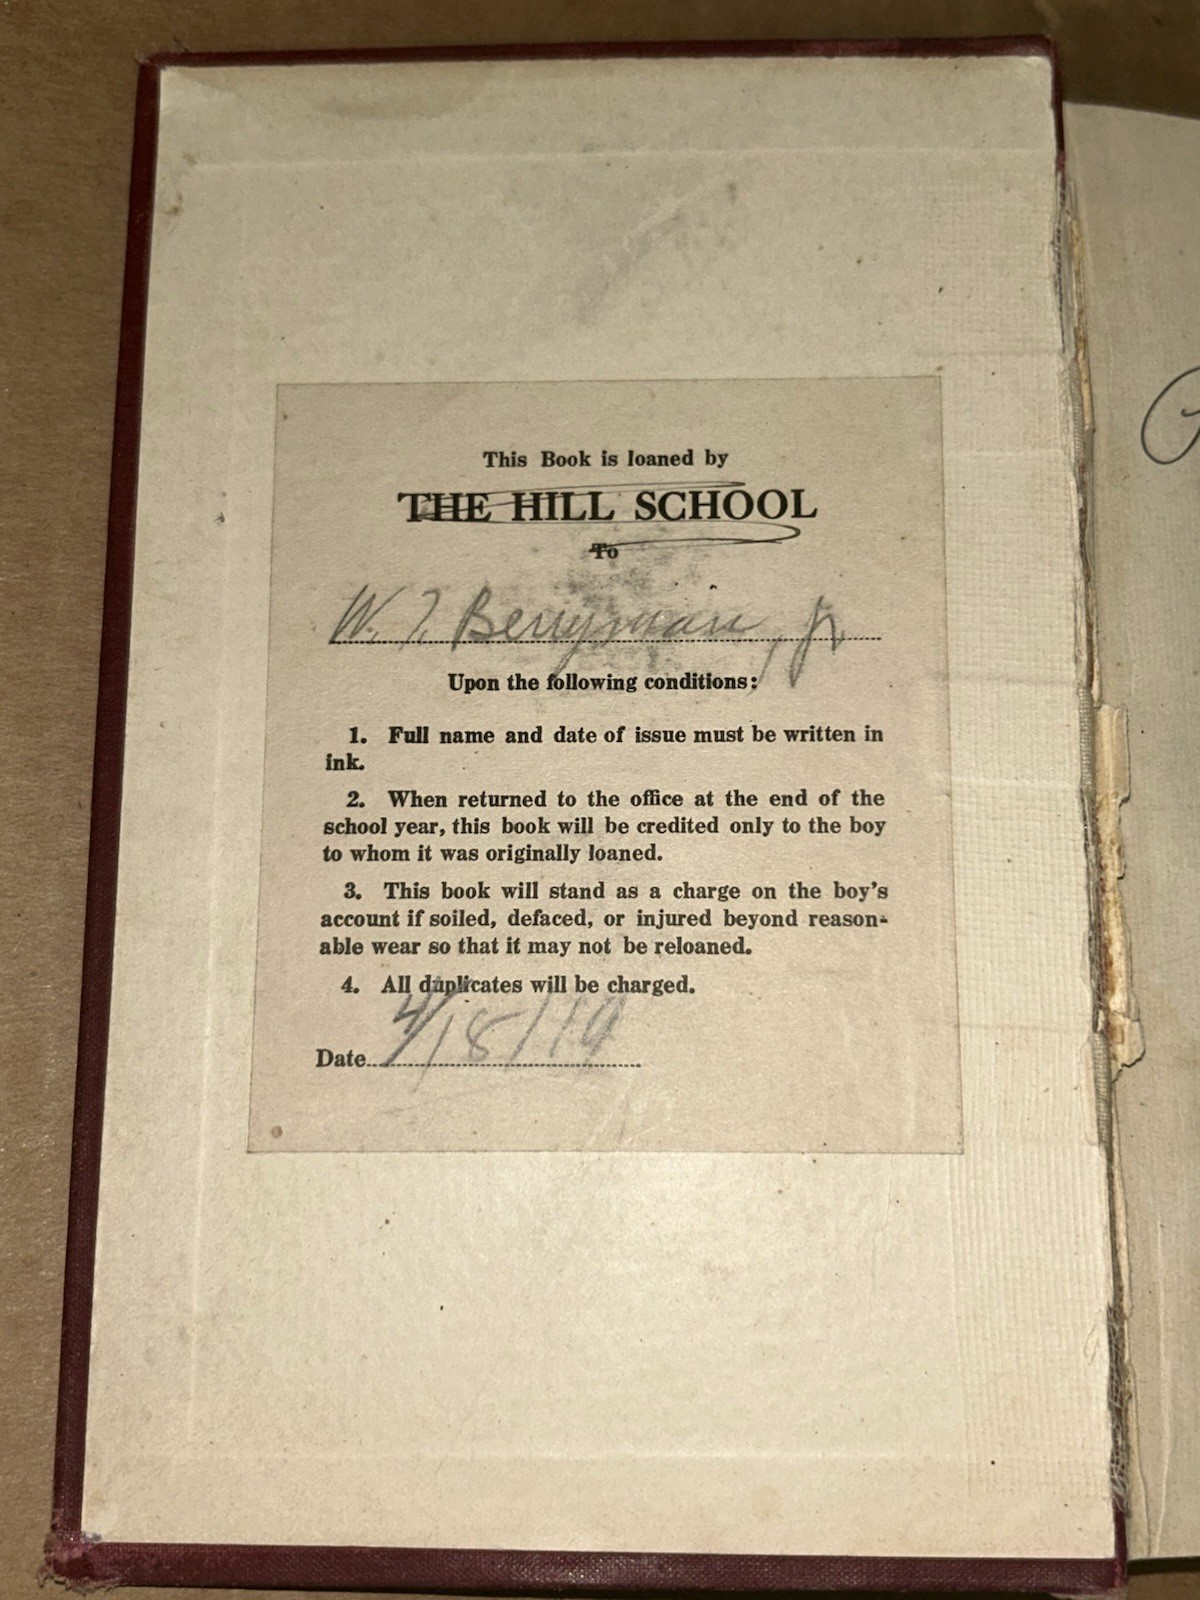 This Book is loaned by
THE HILL SCHOOL
To
W. J. Berryman, Jr
Upon the following conditions:
1. Full name and date of issue must be written in
ink.
2. When returned to the office at the end of the
school year, this book will be credited only to the boy
to whom it was originally loaned.
3. This book will stand as a charge on the boy's
account if soiled, defaced, or injured beyond reason-
able wear so that it may not be reloaned.
4. All duplicates will be charged.
Date 4/18/19